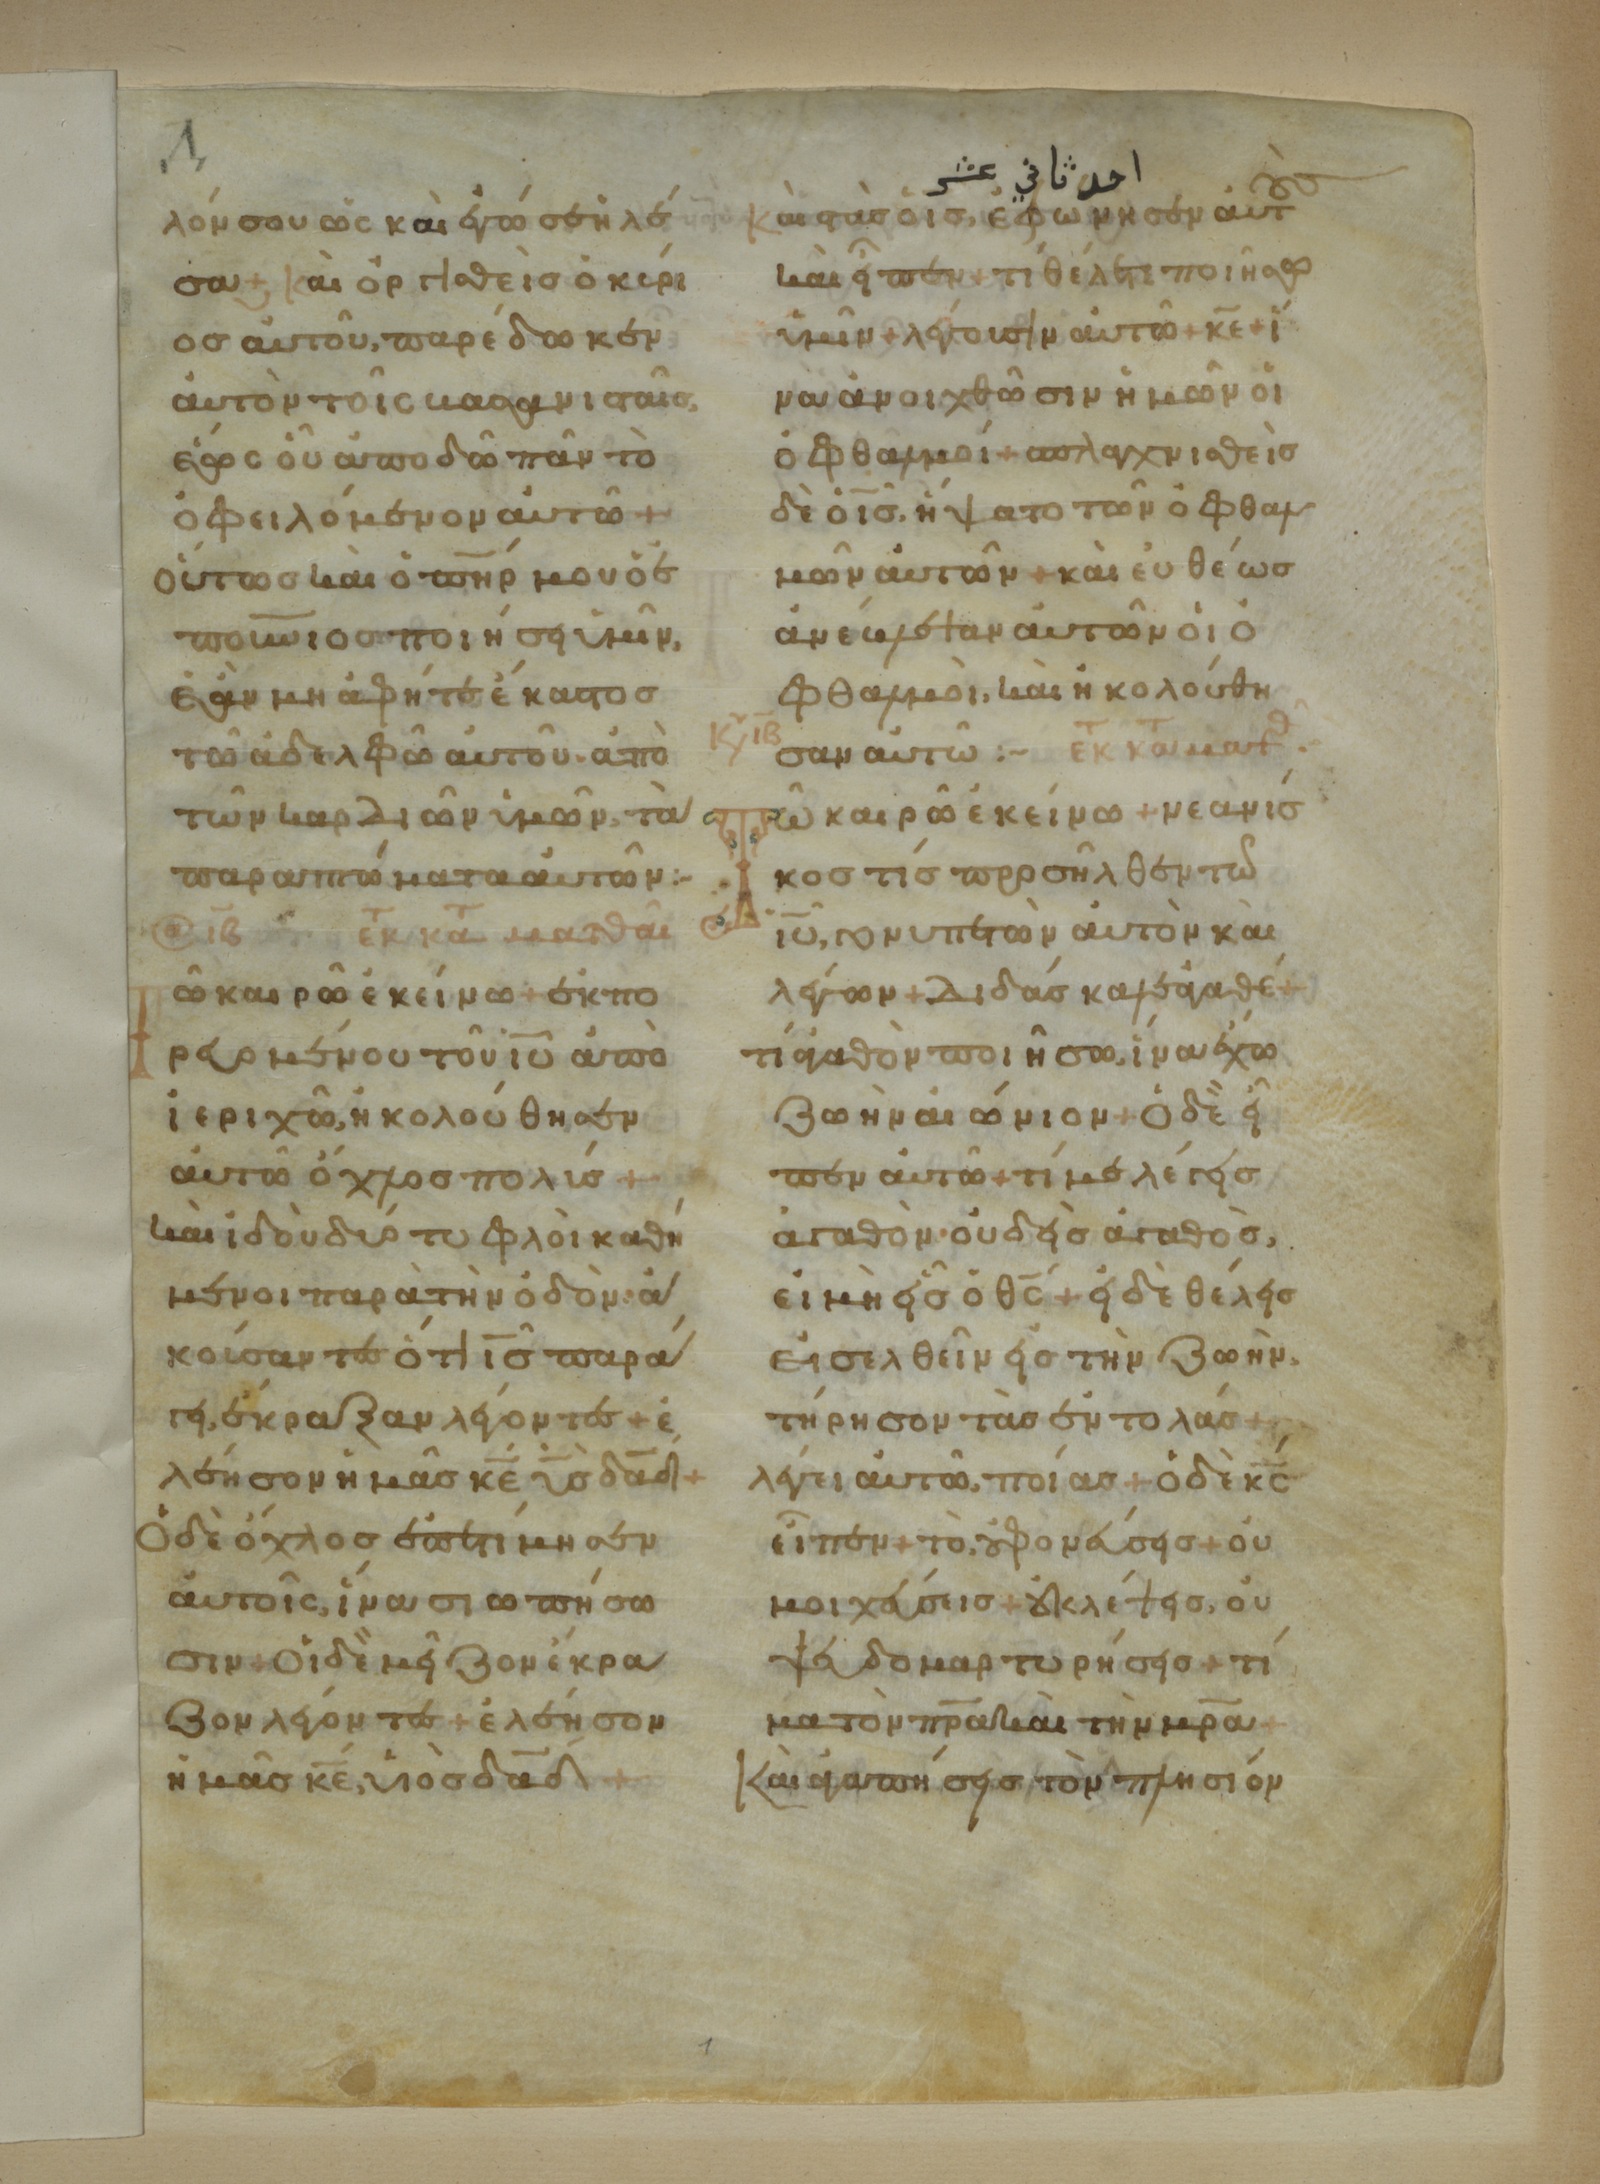 احد ثاني عشر
λόν σου ὡς καὶ ἐγώ σε ἠλέ
σα + Καὶ ὀργισθεὶς ὁ κύρι
ος αὐτοῦ, παρέδωκεν
αὐτὸν τοῖς βασανισταῖς,
ἕως οὗ ἀποδῶ πᾶν τὸ
ὀφειλόμενον αὐτῶ +
Οὕτως καὶ ὁ πηρ μου ὁ ἐ
πουνιος ποιήσει ὑμῖν,
ἐὰν μὴ ἀφῆτε ἕκαστος
τῶ ἀδελφῶ αὐτοῦ. ἀπὸ
τῶν καρδιῶν ὑμῶν, τὰ
παραπτώματα αὐτῶν :-
ιβ ἐκ κατ ματθαι
Τῶ καιρῶ ἐκείνω + ἐκπο
ρευομένου τοῦ ιυ ἀπὸ
ἱεριχῶ, ἠκολούθησεν
αὐτῶ ὄχλος πολύς +
καὶ ἰδοὺ δύο τυφλοὶ καθή
μενοι παρὰ τὴν ὁδὸν. ἀ
κούσαντες ὅτι ις παρά
γει, ἔκραξαν λέγοντες + ἐ
λέησον ἡμᾶς κε υς δαδ +
Ὁ δὲ ὄχλος ἐπετίμησεν
αὐτοῖς, ἵνα σιωπήσω
σιν + Οἱ δὲ μεῖζον ἔκρα
ζον λέγοντες + ἐλέησον
ἡμᾶς κε, υἱὸς δαδ +
Καὶ στὰς ὁ ις, ἐφώνησεν αὐτ
καὶ εἶπεν + τί θέλετε ποιήσω
ὑμῖν + λέγουσιν αὐτῶ + κε + ἵ
να ἀνοιχθῶσιν ἡμῶν οἱ
ὀφθαλμοί + σπλαγχνισθεὶς
δὲ ὁ ις, ἥψατο τῶν ὀφθαλ
μῶν αὐτῶν + καὶ εὐθέως
ἀνέωξαν αὐτῶν οἱ ὀ
φθαλμοὶ, καὶ ἠκολούθη
σαν αὐτῶ :- ἐκ κατ ματθ
Κυ ιβ
Τῶ καιρῶ ἐκείνω + νεανίσ
κος τίς προσῆλθεν τῶ
ιυ, γονυπετῶν αὐτὸν καὶ
λέγων + Διδάσκαλε ἀγαθέ +
τί ἀγαθὸν ποιήσω, ἵνα ἔχω
ζωὴν αἰώνιον + Ὁ δὲ εἶ
πεν αὐτῶ + τί με λέγεις
ἀγαθὸν. οὐδεὶς ἀγαθὸς,
εἰ μὴ εἷς ὁ θς + εἰ δὲ θέλεις
εἰσελθεῖν εἰς τὴν ζωὴν.
τήρησον τὰς ἐντολάς +
λέγει αὐτῶ. ποίας + ὁ δὲ κς
εἶπεν + τὸ, οὐ φονεύσεις + οὐ
μοιχεύσεις + οὐ κλέψεις, οὐ
ψευδομαρτυρήσεις + τί
μα τὸν πρα καὶ τὴν μρα +
Καὶ ἀγαπήσεις τὸν πλησίον
1